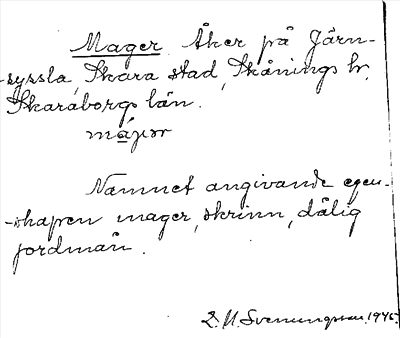 Mager Åker på Järn-
syssla, Skara stad, Skånings hr.
Skaraborgs län.
måjǝr
Namnet angivande egen-
-skapen mager, skrinn, dålig
jordmån.
S. H. Svenungsson. 1945.